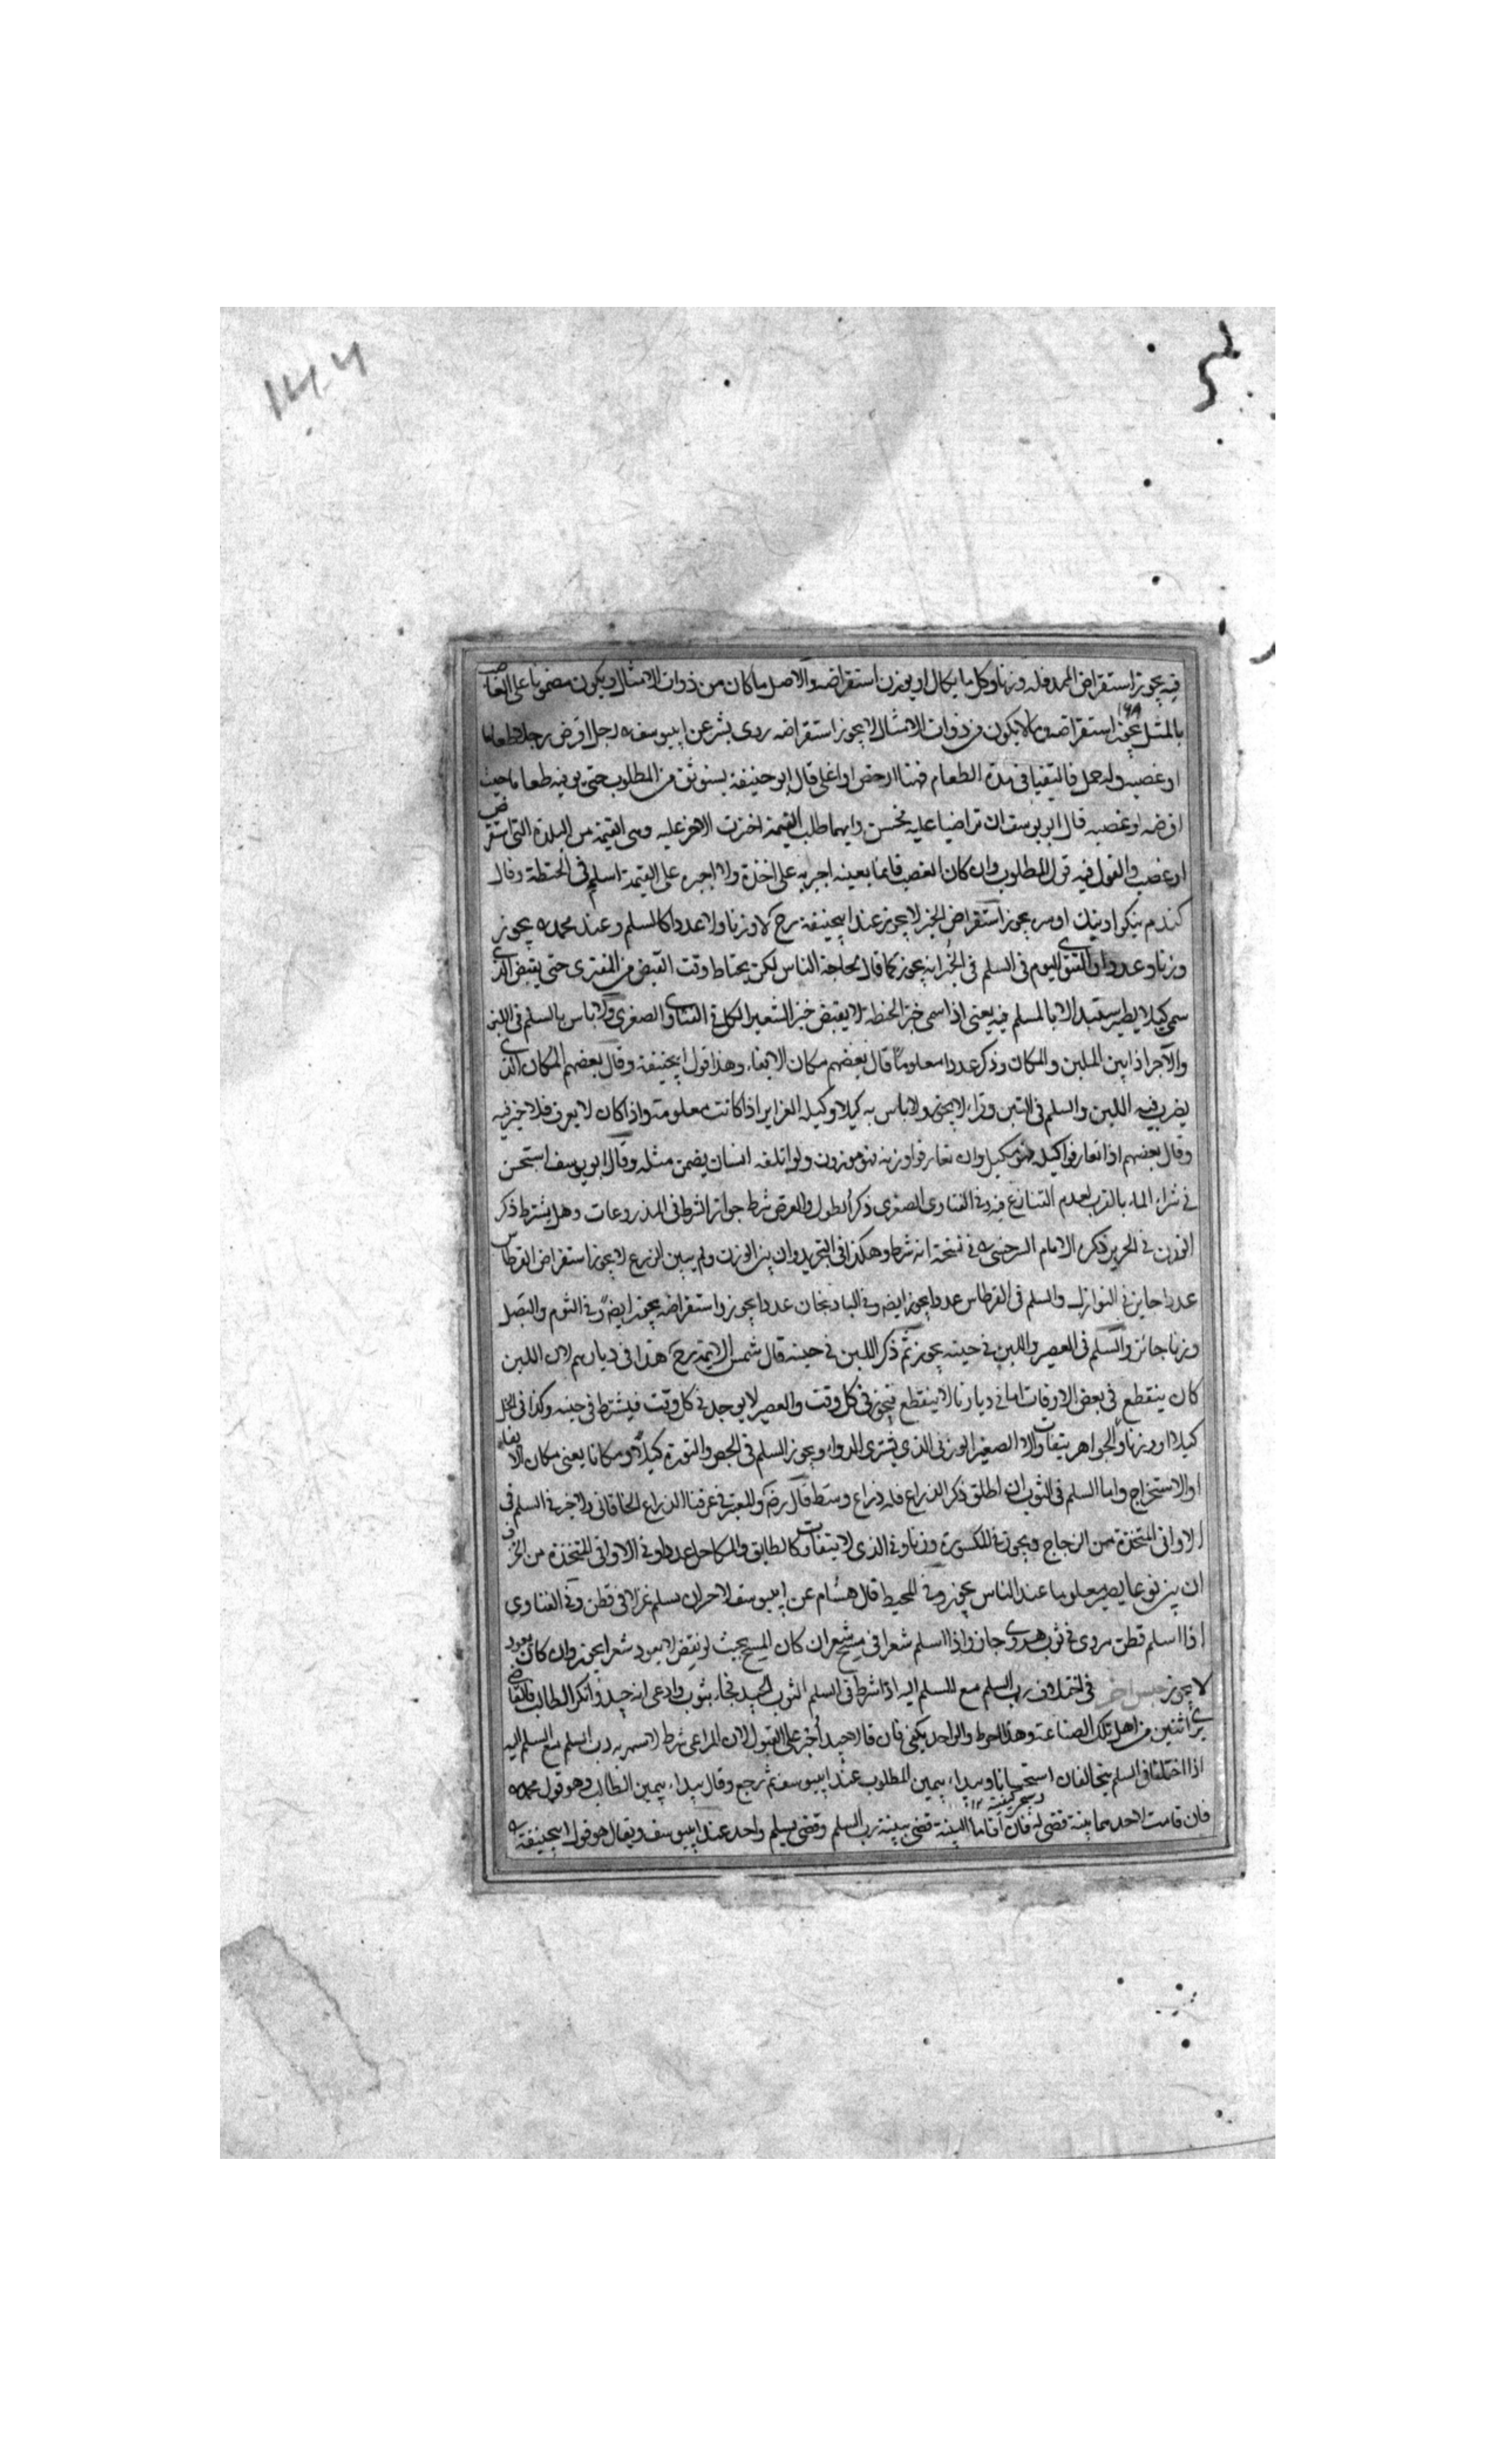 فيه يجوز استقراض الممد فله وزنا وكل ما يكال او يوزن استقراضه والاصل ما كان من ذوات الامثال ويكون مضمونا على الغاصب
بالمثل يجوز استقراضه وما لا يكون من ذوات الامثال لا يجوز استقراضه روى بشر عن ابييوسف رجل اقرض رجلا طعاما
او غصبه وله حمل فالتقيا فى بلدة الطعام فيها ارخص او اغلى قال ابو حنيفة يستوثق من المطلوب حتى يوفيه طعاما حيث
اقرضه او غصبه قال ابو يوسف ان تراضيا عليه فحسن وايهما طلب القيمة اجبرت الاخر عليه وهى القيمة من البلدة التى استقرض
او غصب والقول فيه قول المطلوب وان كان الغصب قائما بعينه اجبر به على اخذه ولا اجبره على القيمة اسلم فى الحنطة وقال
كندم نيكو او نيك او سره يجوز استقراض الخبز لا يجوز عند ابيحنيفة رح لا وزنا ولا عددا كالسلم وعند محمد يجوز
وزنا وعددا والفتوى اليوم فى السلم فى الخبز انه يجوز كما قال لحاجة الناس لكن يحتاط وقت القبض من المفترى حتى يقبض الذى
سمى كيلا يصير مستبدلا بالمسلم فيه يعنى اذا سمى خبز الحنطة لا يقبض خبز الشعير الكل فى الفتاوى الصغرى ولا باس بالسلم فى اللبن
والآجر اذا بين الملبن والمكان وذكر عددا معلوما قال بعضهم مكان الايفاء وهذا قول ابيحنيفة وقال بعضهم المكان الذى
يضرب فيه اللبن والسلم فى التبن لا يجوز ولا باس به كيلا وكيله الغراير اذا كانت معلومة واذا كان لا يعرف فلا خير فيه
وقال بعضهم اذا تعارفوا كيله فهو مكيل وان تعارفوا وزنه فهو موزون ولو اتلفه انسان يضمن مثله وقال ابو يوسف استحسن
فى شراء الماء بالقرب لعدم التنازع فيه وفى الفتاوى الصغرى ذكر الطول والعرض شرط جواز الشرط فى المذروعات وهل يشترط ذكر
الوزن فى الحرير ذكره الامام السرخسى فى نسخته انه شرط وهكذا فى التجريد وان بين الوزن ولم يبين الذرع لا يجوز استقراض القرطاس
عددا جاز فى النوازل والسلم فى القرطاس عددا يجوز ايضا وفى الباد نجان عددا يجوز واستقراضه يجوز ايضا وفى الثوم والبصل
وزنا جائز والسلم فى العصير واللبن فى حينه يجوز ثم ذكر اللبن فى حينه قال شمس الايمة رح هذا فى ديارهم لان اللبن
كان ينقطع فى بعض الاوقات اما فى ديارنا لا ينقطع فيجوز فى كل وقت والعصير لا يوجد فى كل وقت فيشترط فى حينه وكذا فى الخل
كيلا او وزنا والجواهر يتفاوت الا الصغير الوزنى الذى يشترى للدواء ويجوز السلم فى الجص والنورة كيلا ومكانا يعنى مكان الايفاء
او الاستخراج واما السلم فى الثوب ان اطلق ذكر الذراع فله ذراع وسط قال رض والمعتبر فى عرفنا الذراع الخاقانى ولا خير فى السلم فى
الاوانى المتخذة من الزجاج ويجوز فى المكسورة وزنا وفى الذى لا يتفاوت كالطابق والمكاحل عددا وفى الاوانى المتخذة من الخزف
ان بين نوعا يصير معلوما عند الناس يجوز وفى المحيط قال هشام عن ابييوسف لاخر ان يسلم غزلا فى قطن وفى الفتاوى
اذا اسلم قطن مروى فى ثوب هروى جاز واذا اسلم شعرا فى مسح شعر ان كان المسح بحيث لو نقض لا يعود شعرا يجوز وان كان يعود
لا يجوز جنس اخر فى اختلاف رب السلم مع المسلم اليه اذا شرط فى السلم الثوب الجيد فجاء بثوب وادعى انه جيد وانكر الطالب فالقاضى
يرى اثنين من اهل تلك الصناعة وهذا احوط والواحد يكفى فان قالا جيد اجبر على القبول لان المراعى شرط رب السلم مع المسلم اليه
اذا اختلفا فى السلم يتحالفان استحسانا ويبداء بيمين المطلوب عند ابييوسف ثم رجع وقال يبداء بيمين الطالب وهو قول محمد
فان قامت لاحدهما بينة قضى له فان اقاما البينة قضى ببينة رب السلم وقضى بسلم واحد عند ابييوسف ويقال هو قول ابيحنيفة